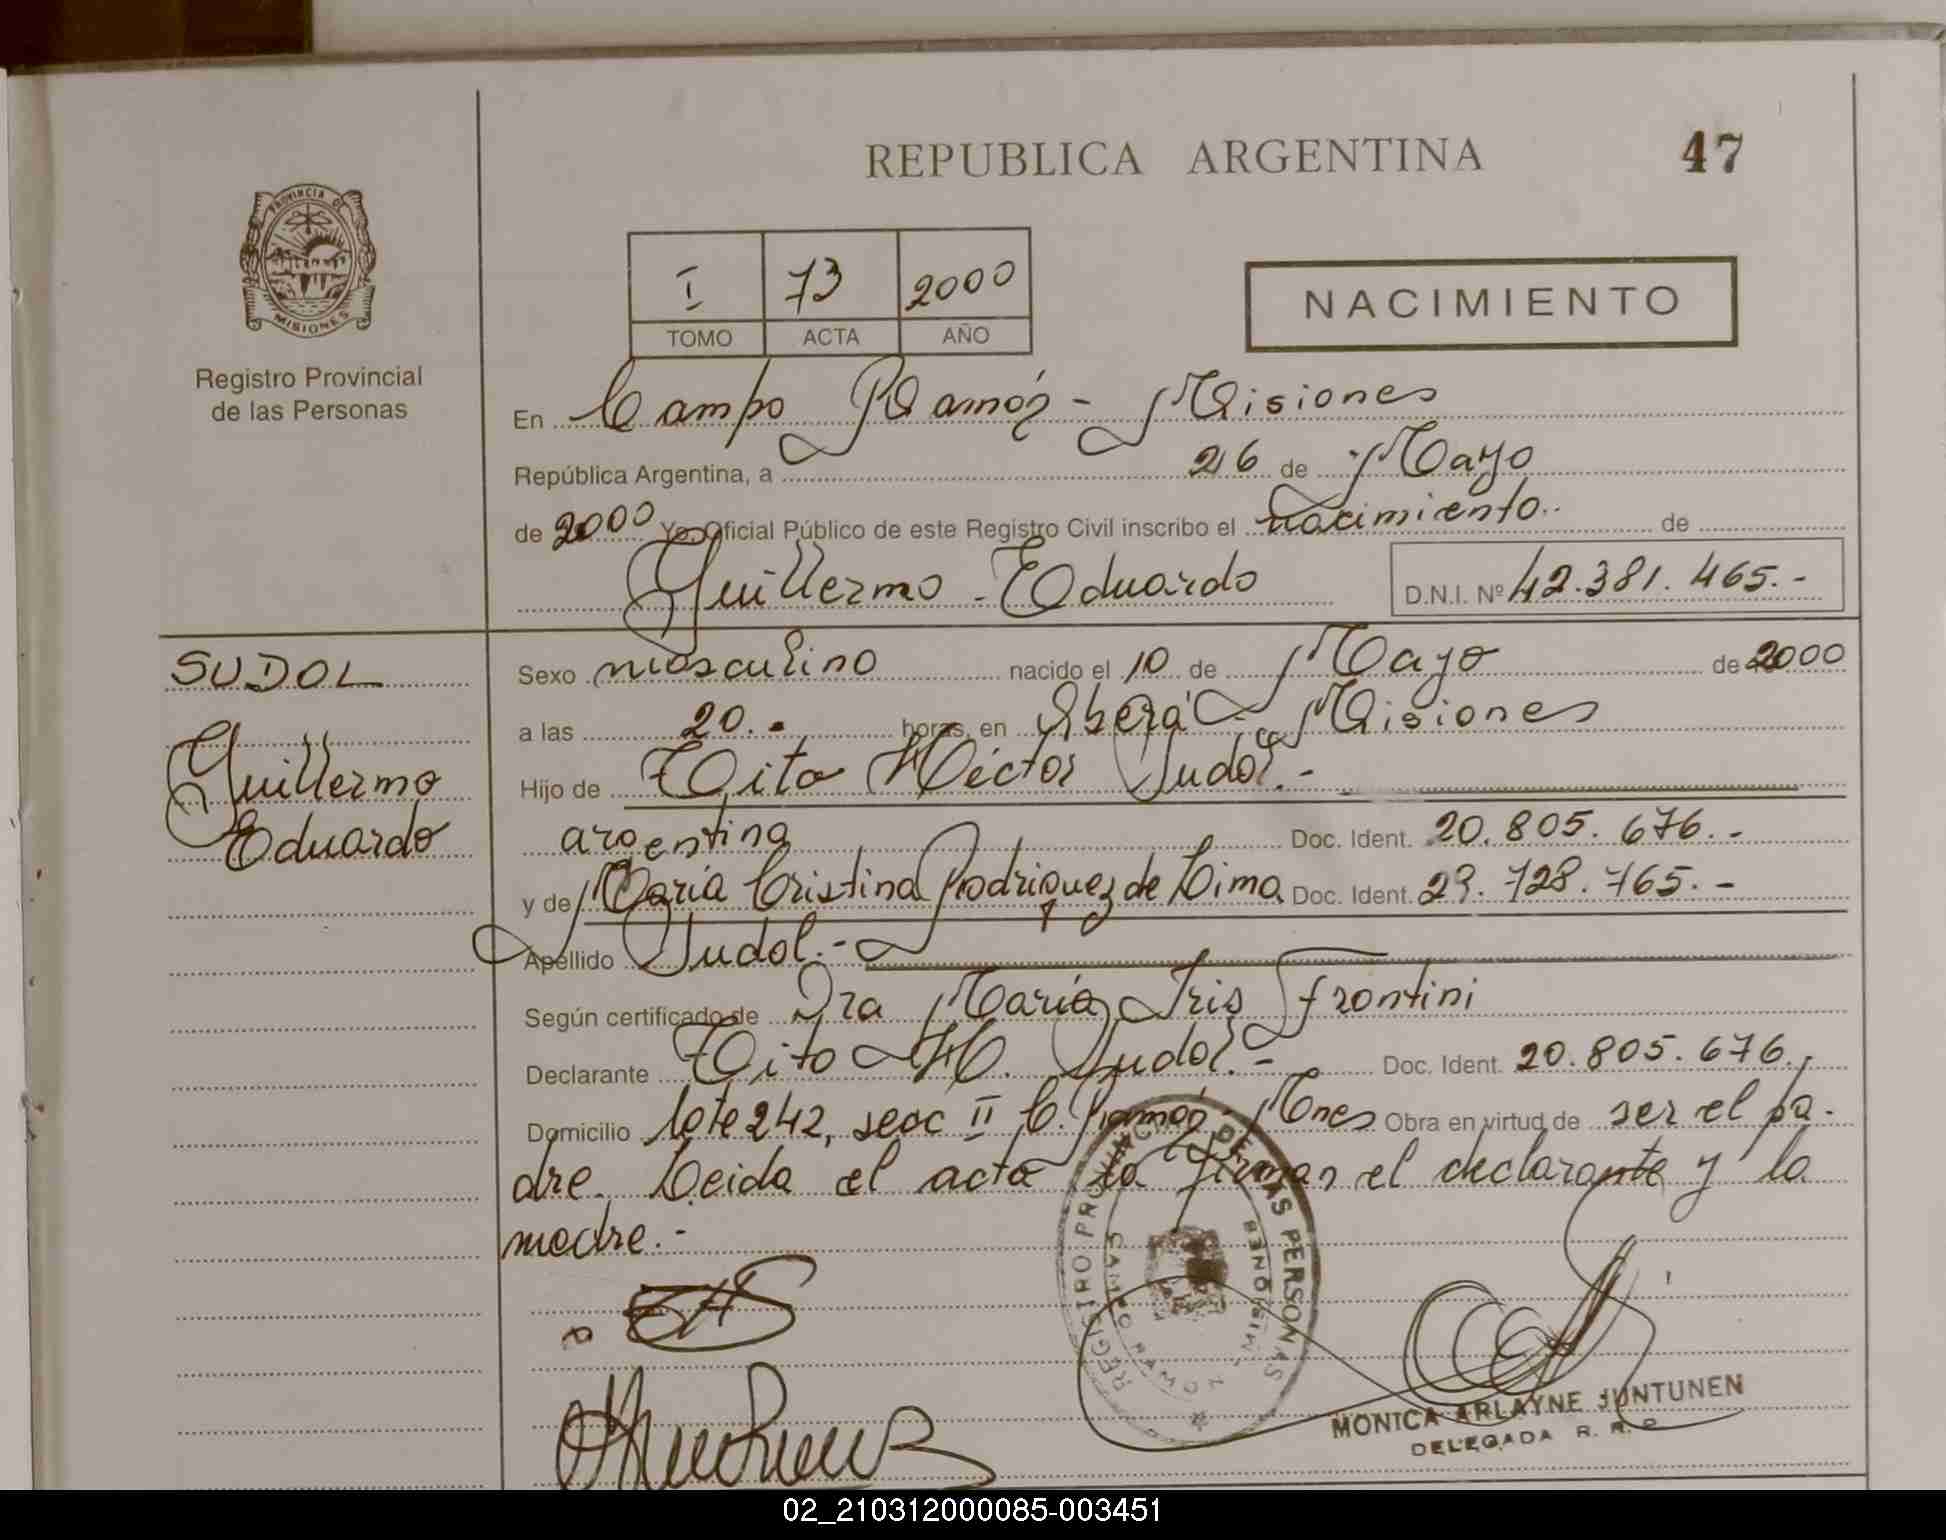 REPUBLICA ARGENTINA
47
PROVINCIA DE
MISIONES
Registro Provincial
de las Personas
I 73 2000
TOMO ACTA AÑO
NACIMIENTO
En Campo Ramón - Misiones
República Argentina, a 26 de Mayo
de 2000 Yo, Oficial Público de este Registro Civil inscribo el nacimiento.. de
Guillermo Eduardo
D.N.I. Nº 42.381.465.-
SUDOL
Guillermo
Eduardo
Sexo masculino nacido el 10 de Mayo de 2000
a las 20.- horas, en Misiones
Hijo de Tito Héctor Sudol.-
argentina Doc. Ident. 20.805.676.-
y de María Cristina Rodriguez de Lima Doc. Ident. 23.728.765.-
Apellido Sudol.-
Según certificado de Dra María Iris Frontini
Declarante Tito H. Sudol.- Doc. Ident. 20.805.676.-
Domicilio lote 242, secc II C. Ramón- Mnes Obra en virtud de ser el pa-
dre. Leida el acta la firman el declarante y la
madre.-
REGISTRO PROVINCIAL DE LAS PERSONAS
CAMPO RAMON - MISIONES
MONICA ARLAYNE JUNTUNEN
DELEGADA R. R. P.
02_210312000085-003451